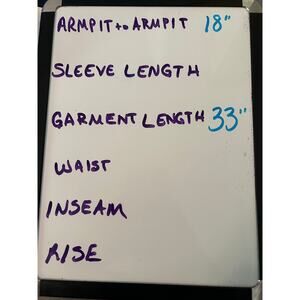 ARMPIT to ARMPIT 18"
SLEEVE LENGTH
GARMENT LENGTH 33"
WAIST
INSEAM
RISE